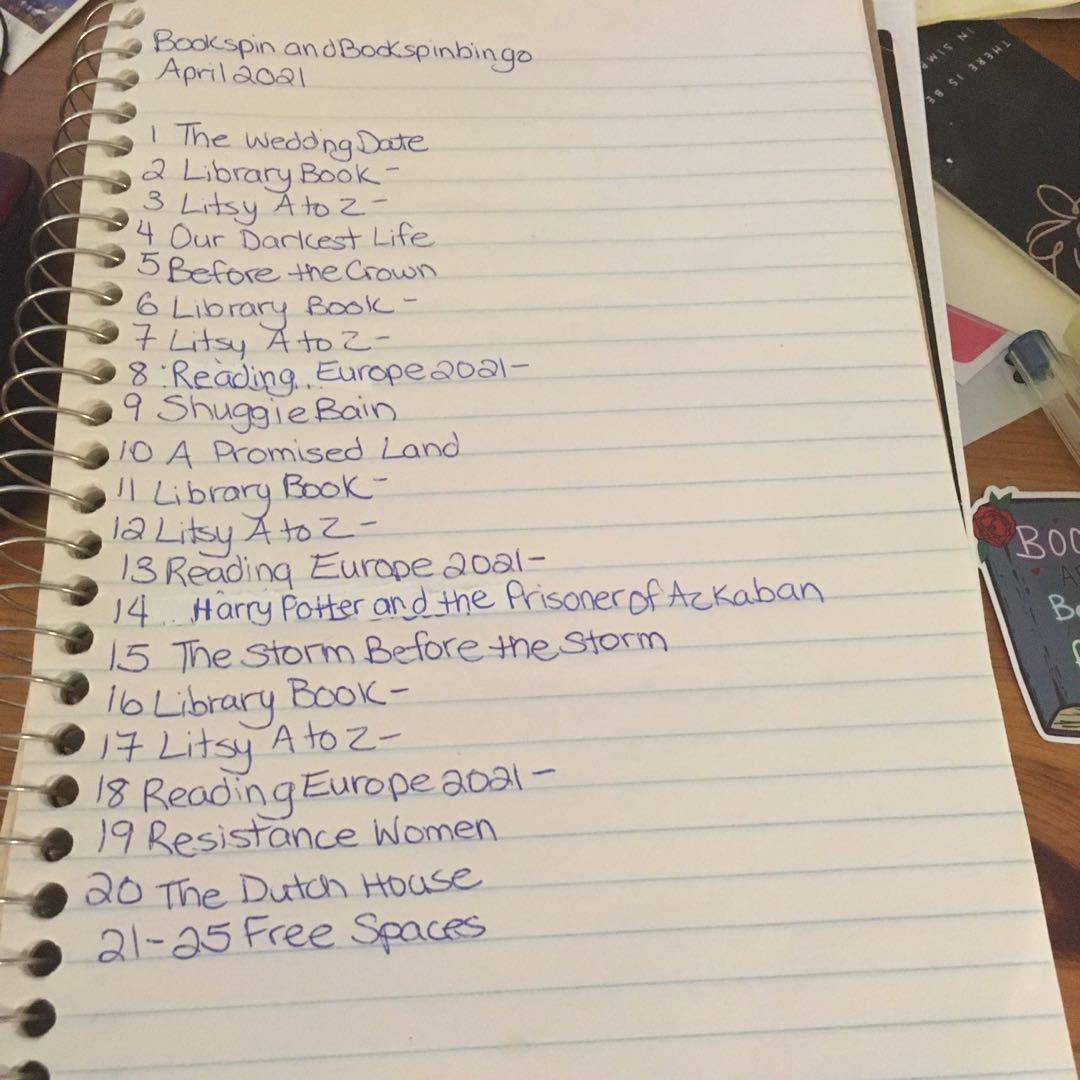 Bookspin and Bookspinbingo
April 2021
1 The Wedding Date
2 Library Book -
3 Litsy A to Z -
4 Our Darkest Life
5 Before the Crown
6 Library Book -
7 Litsy A to Z -
8 Reading Europe 2021 -
9 Shuggie Bain
10 A Promised Land
11 Library Book -
12 Litsy A to Z -
13 Reading Europe 2021 -
14 Harry Potter and the Prisoner of Azkaban
15 The Storm Before the Storm
16 Library Book -
17 Litsy A to Z -
18 Reading Europe 2021 -
19 Resistance Women
20 The Dutch House
21-25 Free Spaces
THERE IS BE
IN SIMP
BOO